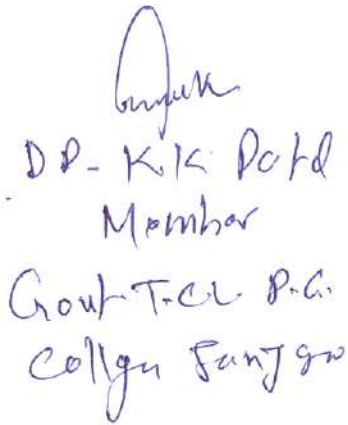 DR- K.K. Patel
Member
Govt. T.C.L. P.G.
College Janjgir